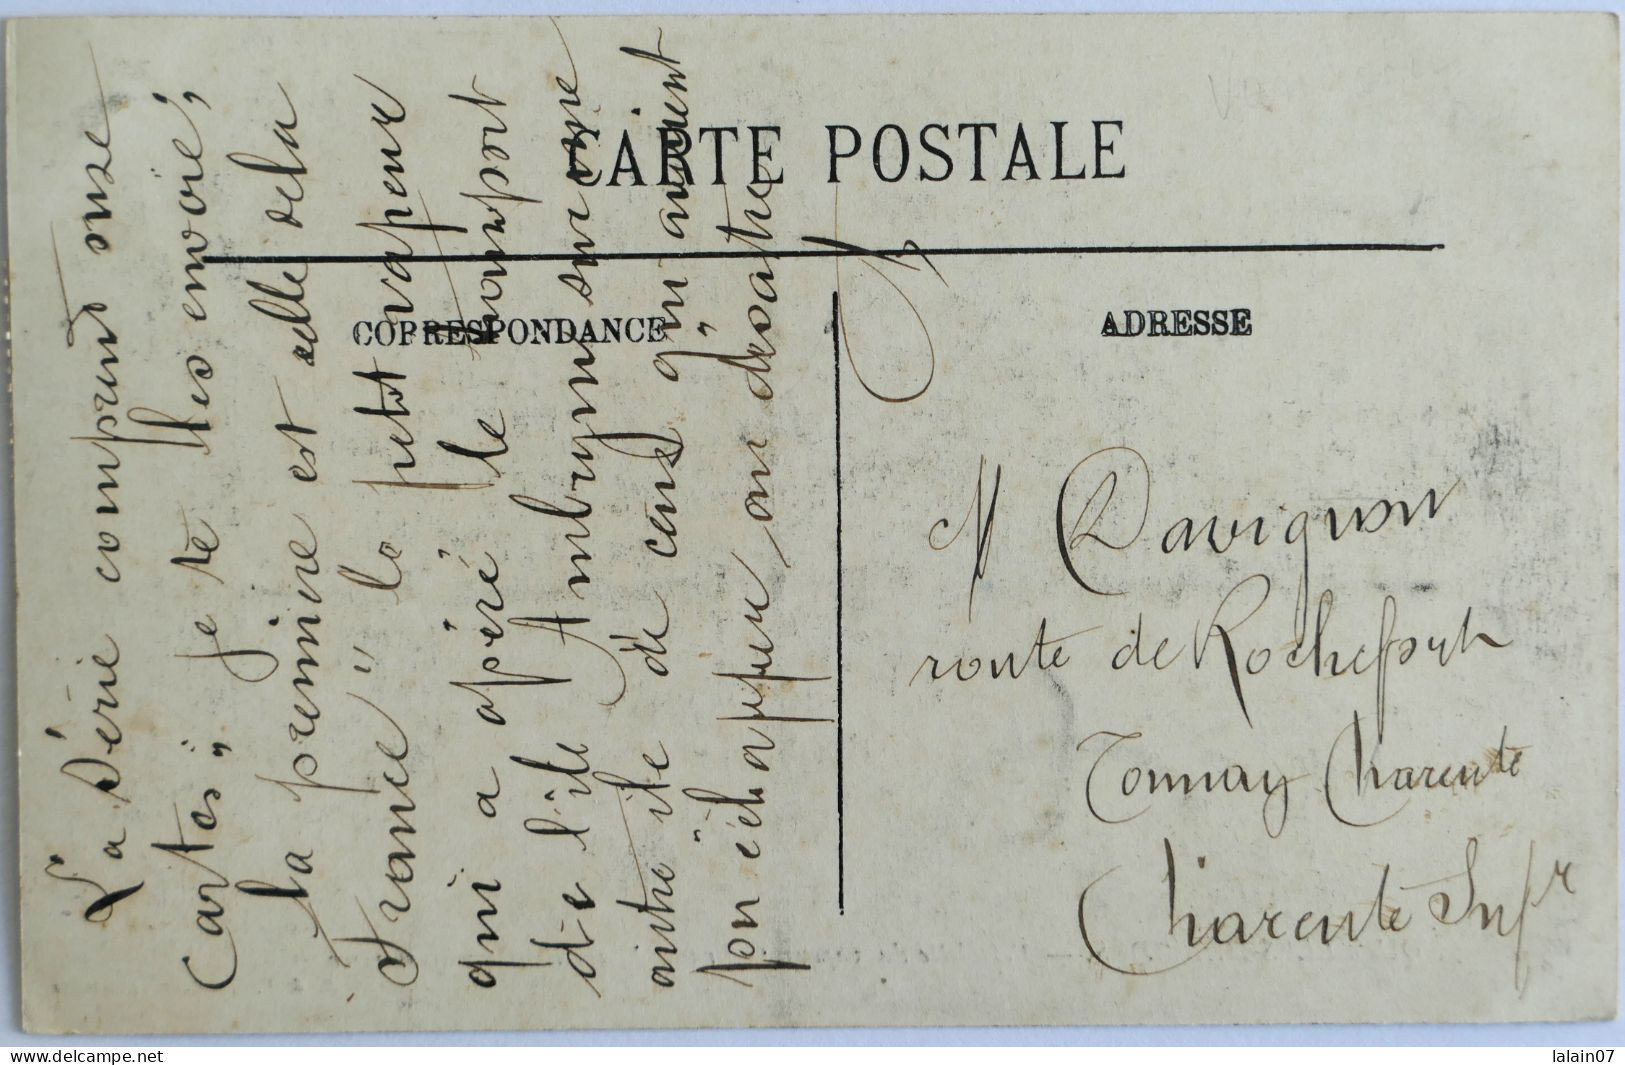 CARTE POSTALE
CORRESPONDANCE
ADRESSE
La série comprend onze
cartes, je te les envoie,
la premiere est celle de la
France" le petit vapeur
qui a opéré le transport
de l'ile Ambryn sur une
autre ile de ceux qui avaient
pu échapper au désastre
M Davignon
route de Rochefort
Tonnay Charente
Charente Infre
delcampe.net
lalain07